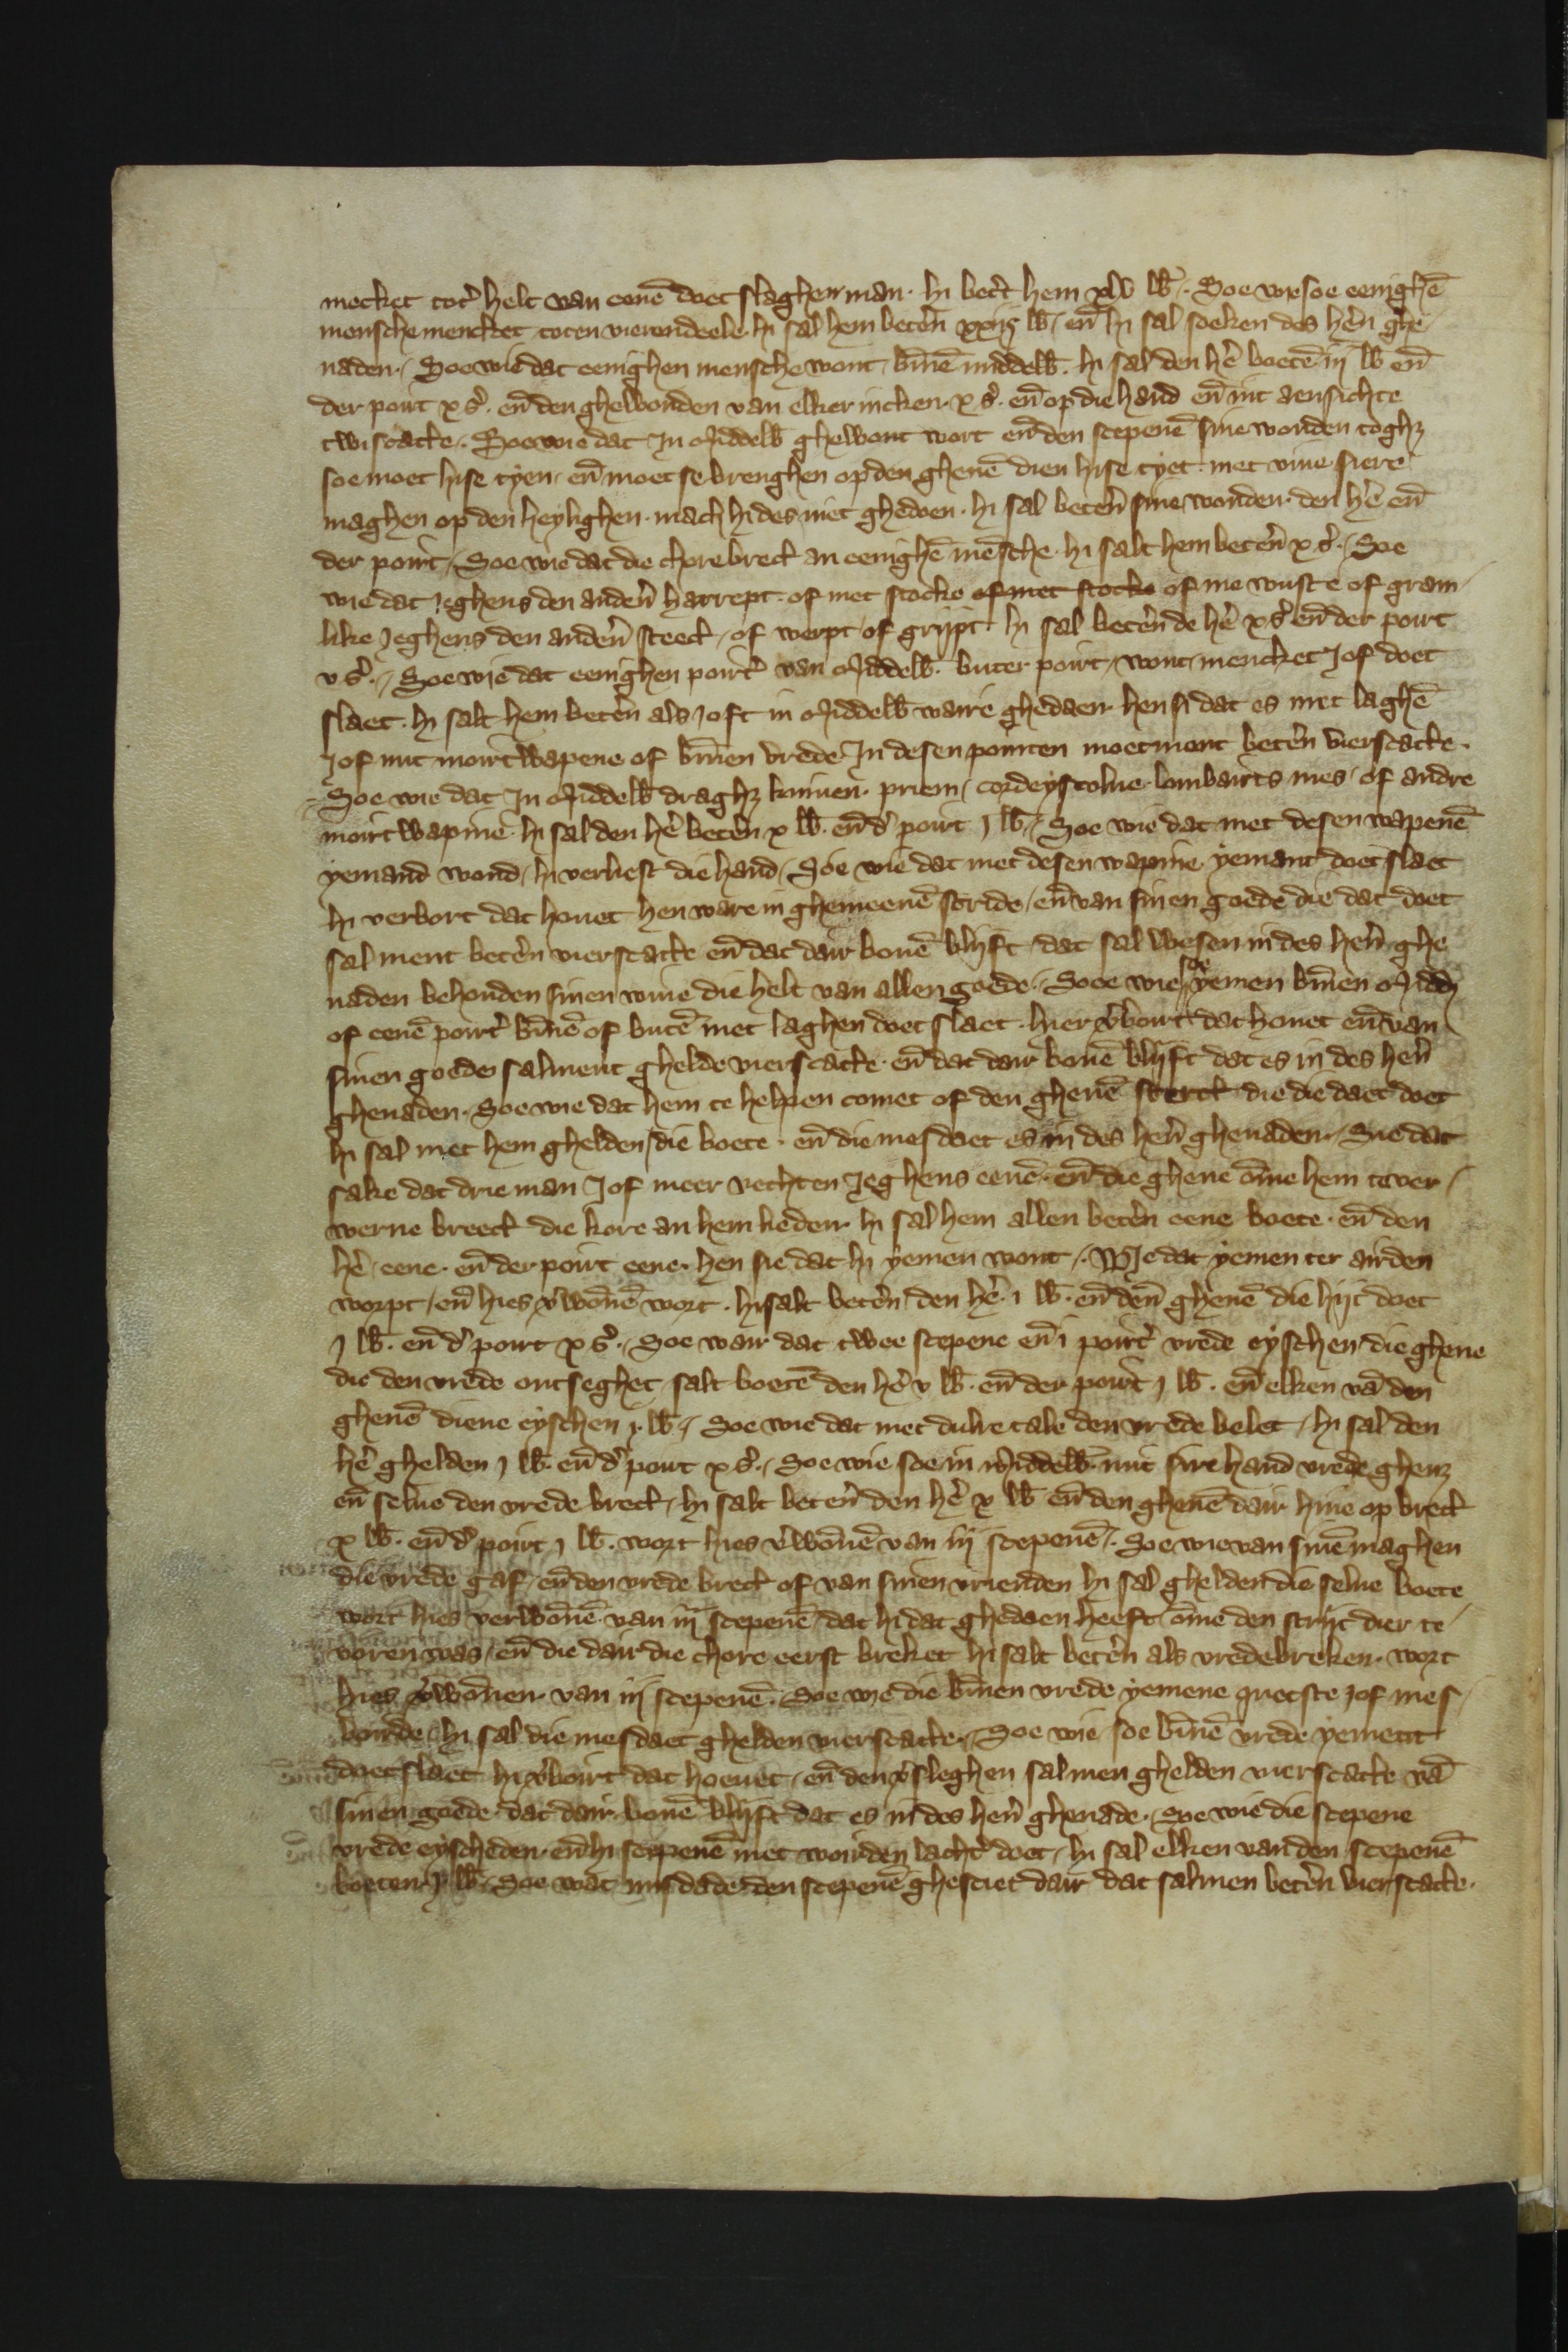 mecket tot' helt van eenē doet slaghen man · hi bet't hem xlv lb̄ · Soe wiesoe eenighē
mensche mencket toten vierendeele hi sal hem bet'en xxiiȷ lb̄ / eñ hi sal soeken des h'en ghe
naden / Soe wie dat eenighen mensche wont bīnē middelb̄ · hi sal den h'e boetē iij lb̄ eñ
der poirt x s̄ · eñ den ghewonden van elker incken · x s̄ · eñ op die hand eñ int aensichte
twiscatte · Soe wie dat In Middelb̄ ghewont wort eñ den scepenē sine wonden toghꝫ
soe moet hise tyen · eñ moet se brenghen op den ghenē dien hise tyet · met viue siere
maghen op den heylighen · mach hi des niet ghedoen · hi sal bet'en sine wonden · den h'e eñ
der poirt / Soe wie dat die chore brect an eenighē mēsche · hi salt hem bet'en x s̄ · / Soe
wie dat jeghens den and'en harrept · of met stocke of met stocke of me vuste of gram
like Jeghens den and'en steect / of werpt / of grijpt · hi sal bet'en de h'e x s̄ eñ der poirt
v s̄ · / Soe wie dat eenighen poirt' van Middelb̄ · buter poirt / wont / mencket Jof doet
slaet · hi salt hem bet'en als Joft in Middelb̄ waire ghedaen · hen si dat es met laghē
Jof mit moirtwapene of bīnen vrede In desen pointen moetment bet'en vierscatte ·
Soe wie dat In Middelb̄ draghꝫ kniuen · priem / cordeystolue · lombairts mes / of andre
moirtwapine · hi sal den h'e bet'en x lb̄ · eñ d' poirt j lb̄ · / Soe wie dat met desen wapenē
yemand wond / hi verliest die hand / Soe wie dat met desen wapine yemant doet slaet
hi verbort dat houet hen ware in ghemeenē stride / eñ van sinen goede die dat doet
sal ment bet'en vierscatte eñ dat dair bouē blijft dat sal wesen in des h'en ghe
naden behouden sinen wiue die helt van allen goede · / Soee wie soe yemen bīnen Middꝫ
of eenē poirt' bīnē of butē met laghen doet slaet · hier v'boirt dat houet eñ van
sinen goede salment ghelde vierscatte · eñ dat dair bouē blijft dat es in des h'en
ghenaden · Soe wie dat hem te helpen comet of den ghenē sterct die die daet doet
hi sal met hem ghelden die boete · eñ die mesdaet es in des h'en ghenaden · / Sie dat
sake dat drie man Jof meer vechten Jeghens eenē · eñ die ghene ōme hem te ver /
werne breect die kore an hem lieden · hi sal hem allen bet'en eene boete · eñ den
h'e eene · eñ der poirt eene · hen sie dat hi yemen wont / · Wie dat yemen ter airden
worpt / eñ hies v'wōnē wort · hi salt bet'en den h'e · j lb̄ · eñ den ghenē die hijt doet
j lb̄ · eñ d' poirt x s̄ · / Soe wair dat twee scepene eñ i poirt' vrede eyschen die ghene
die den vrede ontseghet salt boetē den h'e v lb̄ · eñ der poirt j lb̄ · eñ elken vā den
ghenē diene eyschen j · lb̄ · / Soe wie dat met dulre tale den vrede belet / hi sal den
h'e ghelden j lb̄ · eñ d' poirt x s̄ · / Soe wie soe in Middelb̄ · mit sire hand vrede gheuꝫ
eñ selue den vrede brect / hi salt bet'en den h'e x lb̄ eñ den ghenē dair hine op brect
x lb̄ · eñ d' poirt j lb̄ · wort hies v'wōnē van iij scepenē · Soe wie van sinē maghen
die vrede gaf / eñ den vrede brect of van sinen vrienden hi sal ghelden die selue boete
wort hies verwōnē van iij scepenē / dat hi dat ghedaen heeft / ōme den strijt dier te
voren was / eñ die dair die chore eerst breket hi salt bet'en als vredebreken · wort
hies v'wōnen · van iij scepenē · Soe wie die bīnen vrede yemene quetste jof mes /
boirde / hi sal die mesdaet ghelden vierscatte · / Soe wie soe bīnē vrede yement
doet slaet hi v'boirt dat hoeuet / eñ den v'sleghen salmen ghelden vierscatte vā
sinen goede dat dair bouē blijft dat es in des h'en ghenade · / Soe wie die scepene
vrede eyscheden · eñ hi scepenē met woirden lacht' doet / hi sal elken van den scepenē
boeten j lb̄ · / Soe wat misdade den scepenē ghesciet dair dat salmen bet'en vierscatte ·